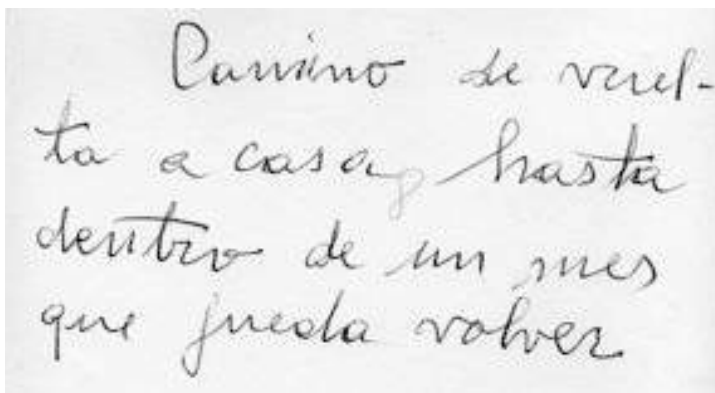 Camino de vuel-
ta a casa, hasta
dentro de un mes
que pueda volver